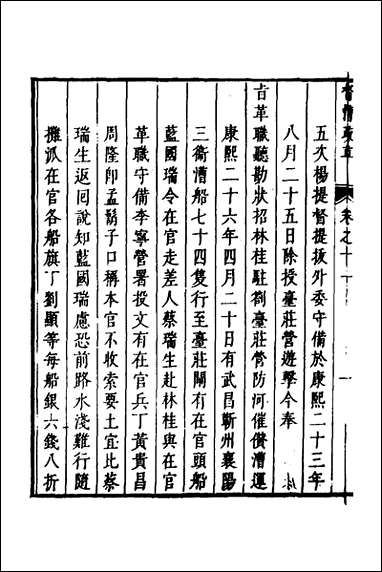 督漕疏草
卷之十
一
五次楊提督提拔外委守備於康熙二十三年
八月二十五日除授臺莊營遊擊今奉
旨革職聽勘狀招林桂駐劄臺莊營防河催儹漕運
康熙二十六年四月二十日有武昌蘄州襄陽
三衛漕船七十四隻行至臺莊閘有在官頭船
藍國瑞令在官走差人蔡瑞生赴林桂與在官
革職守備李寧營署投文有在官兵丁黃貴昌
周隆卽孟鬍子口稱本官不收索要土宜比蔡
瑞生返回說知藍國瑞慮恐前路水淺難行隨
攤派在官各船旗丁劉顯等每船銀六錢八折